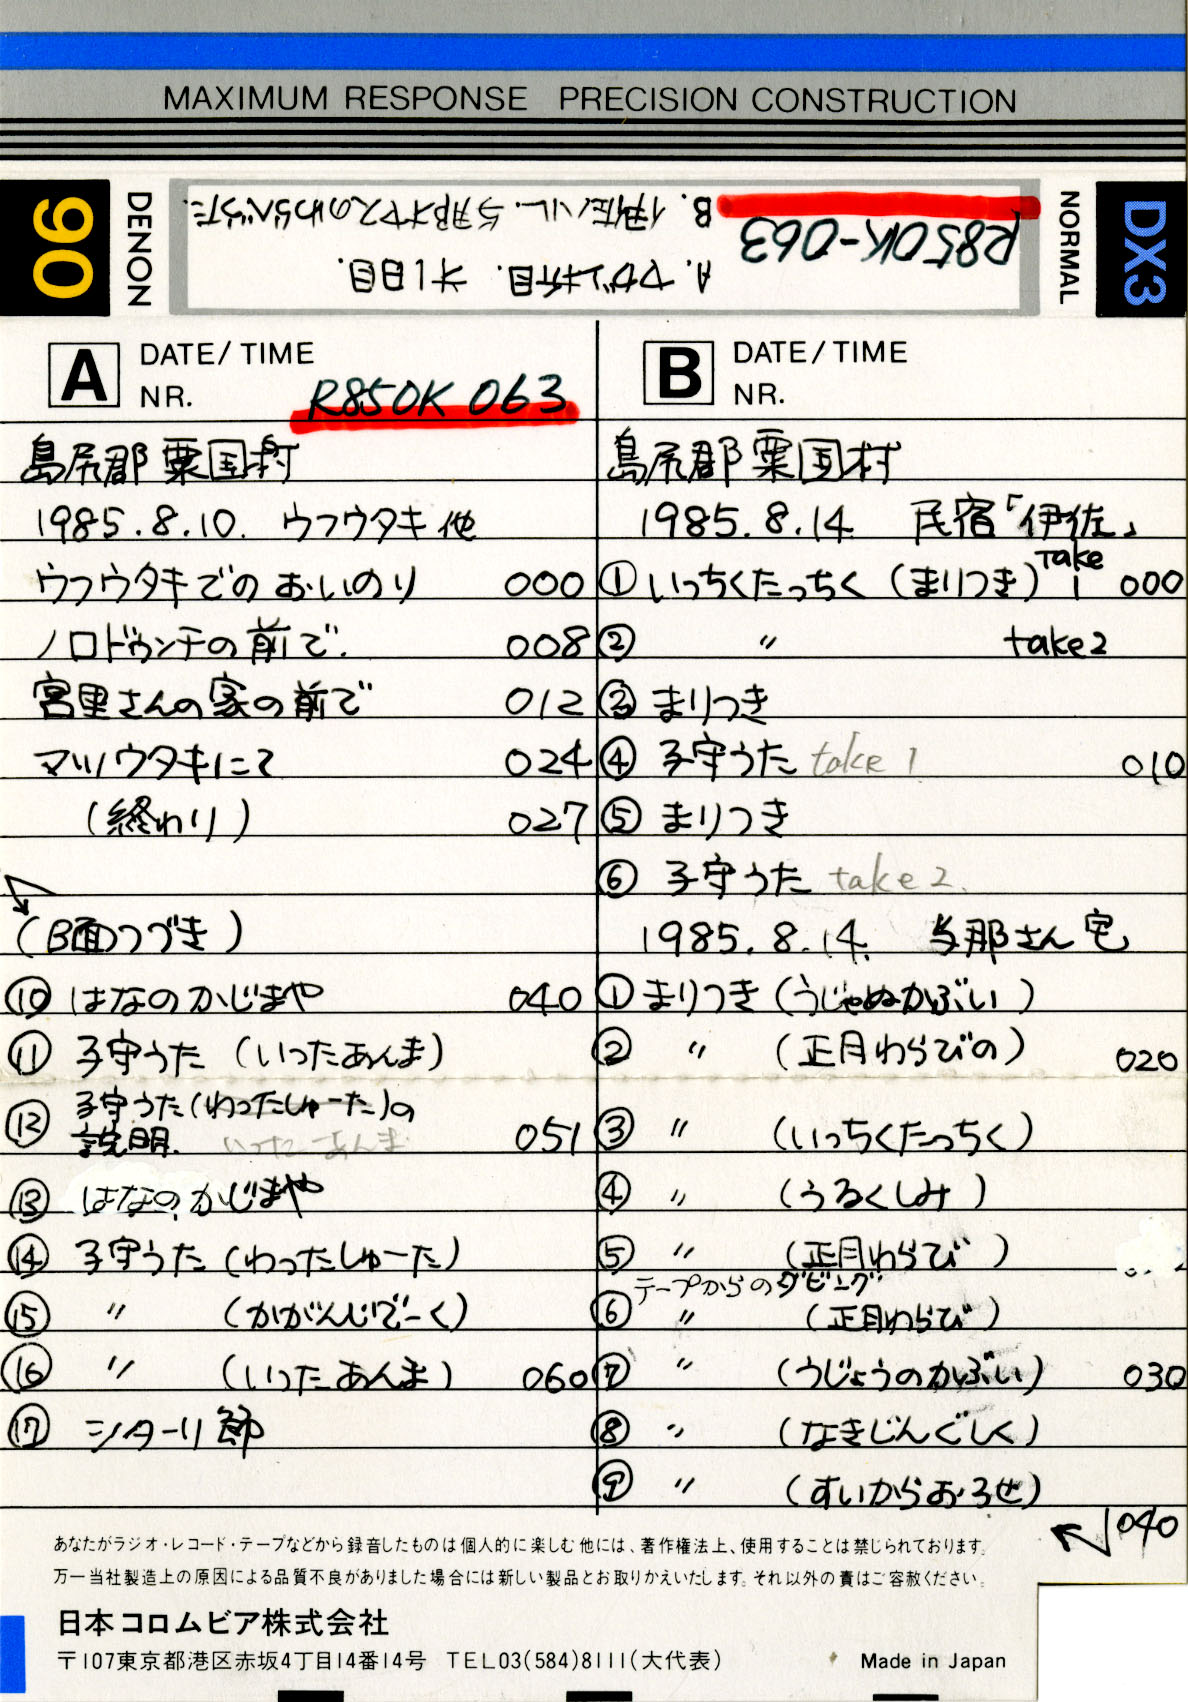 MAXIMUM RESPONSE PRECISION CONSTRUCTION
90
DENON
A. ヤガン折目. 才1日目.
B. 伊佐ハル. 与那オマスのわらべうた.
R850K-063
NORMAL
DX3
A DATE/TIME
NR. R850K 063
島尻郡 粟国村
1985.8.10. ウフウタキ 他
ウフウタキでの おいのり 000
ノロドゥンチの前で. 008
宮里さんの家の前で 012
マツノウタキにて 024
(終わり) 027
(B面つづき)
⑩ はなのかじまや 040
⑪ 子守うた (いったあんま)
⑫ 子守うた(わったしゅーた)の
説明. いったーあんま 051
⑬ はなのかじまや
⑭ 子守うた (わったしゅーた)
⑮ 〃 (かがんじでーく)
⑯ 〃 (いったあんま) 060
⑰ シターリ節
B DATE/TIME
NR.
島尻郡 粟国村
1985.8.14. 民宿「伊佐」
① いっちくたっちく (まりつき) Take 1 000
② 〃 take2
③ まりつき
④ 子守うた take 1 010
⑤ まりつき
⑥ 子守うた take 2.
1985.8.14. 与那さん宅
① まりつき (うじゃぬかぶい)
② 〃 (正月わらびの) 020
③ 〃 (いっちくたっちく)
④ 〃 (うるくしみ)
⑤ 〃 (正月わらび)
テープからのダビング
⑥ 〃 (正月わらび)
⑦ 〃 (うじょうのかぶい) 030
⑧ 〃 (なきじんぐしく)
⑨ 〃 (すいからおろせ)
040
あなたがラジオ・レコード・テープなどから録音したものは個人的に楽しむ他には、著作権法上、使用することは禁じられております。
万一当社製造上の原因による品質不良がありました場合には新しい製品とお取りかえいたします。それ以外の責はご容赦ください。
日本コロムビア株式会社
〒107東京都港区赤坂4丁目14番14号 TEL03(584)8111(大代表)
Made in Japan